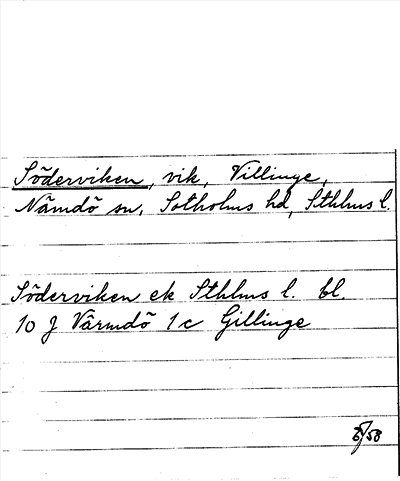 Söderviken, vik, Villinge,
Nämdö sn, Sotholms hd, Sthlms l.
Söderviken ek Sthlms l. bl.
10 J Värmdö 1c Gillinge